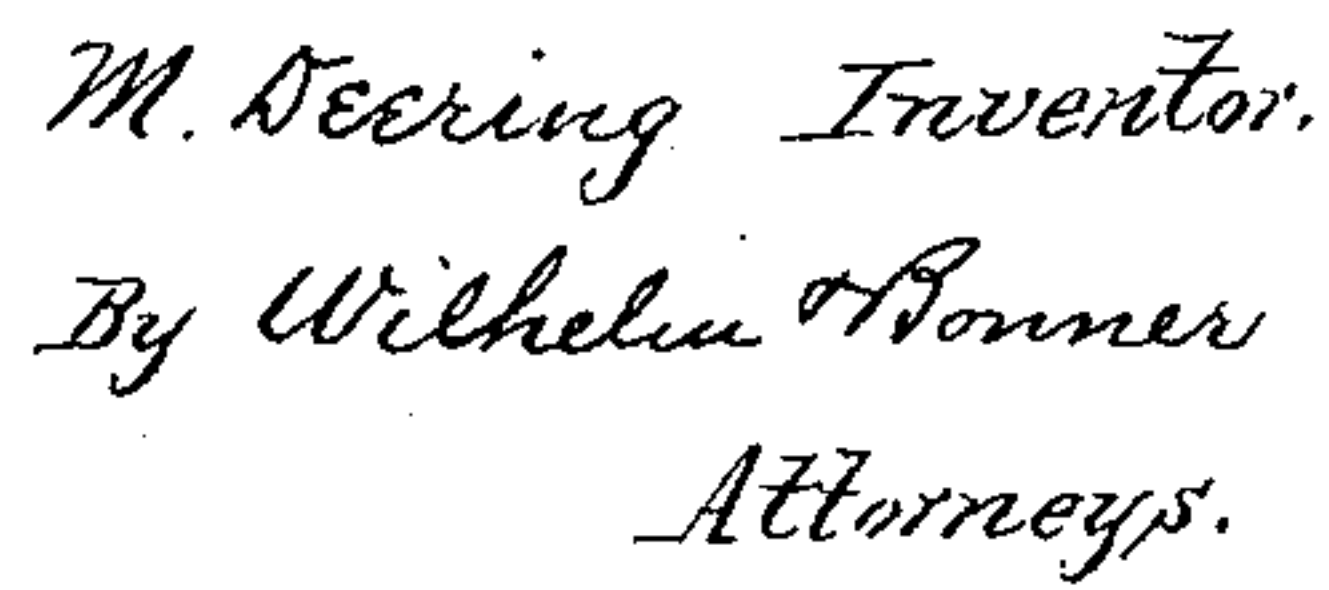 M. Deering Inventor.
By Wilhelm & Bonner
Attorneys.